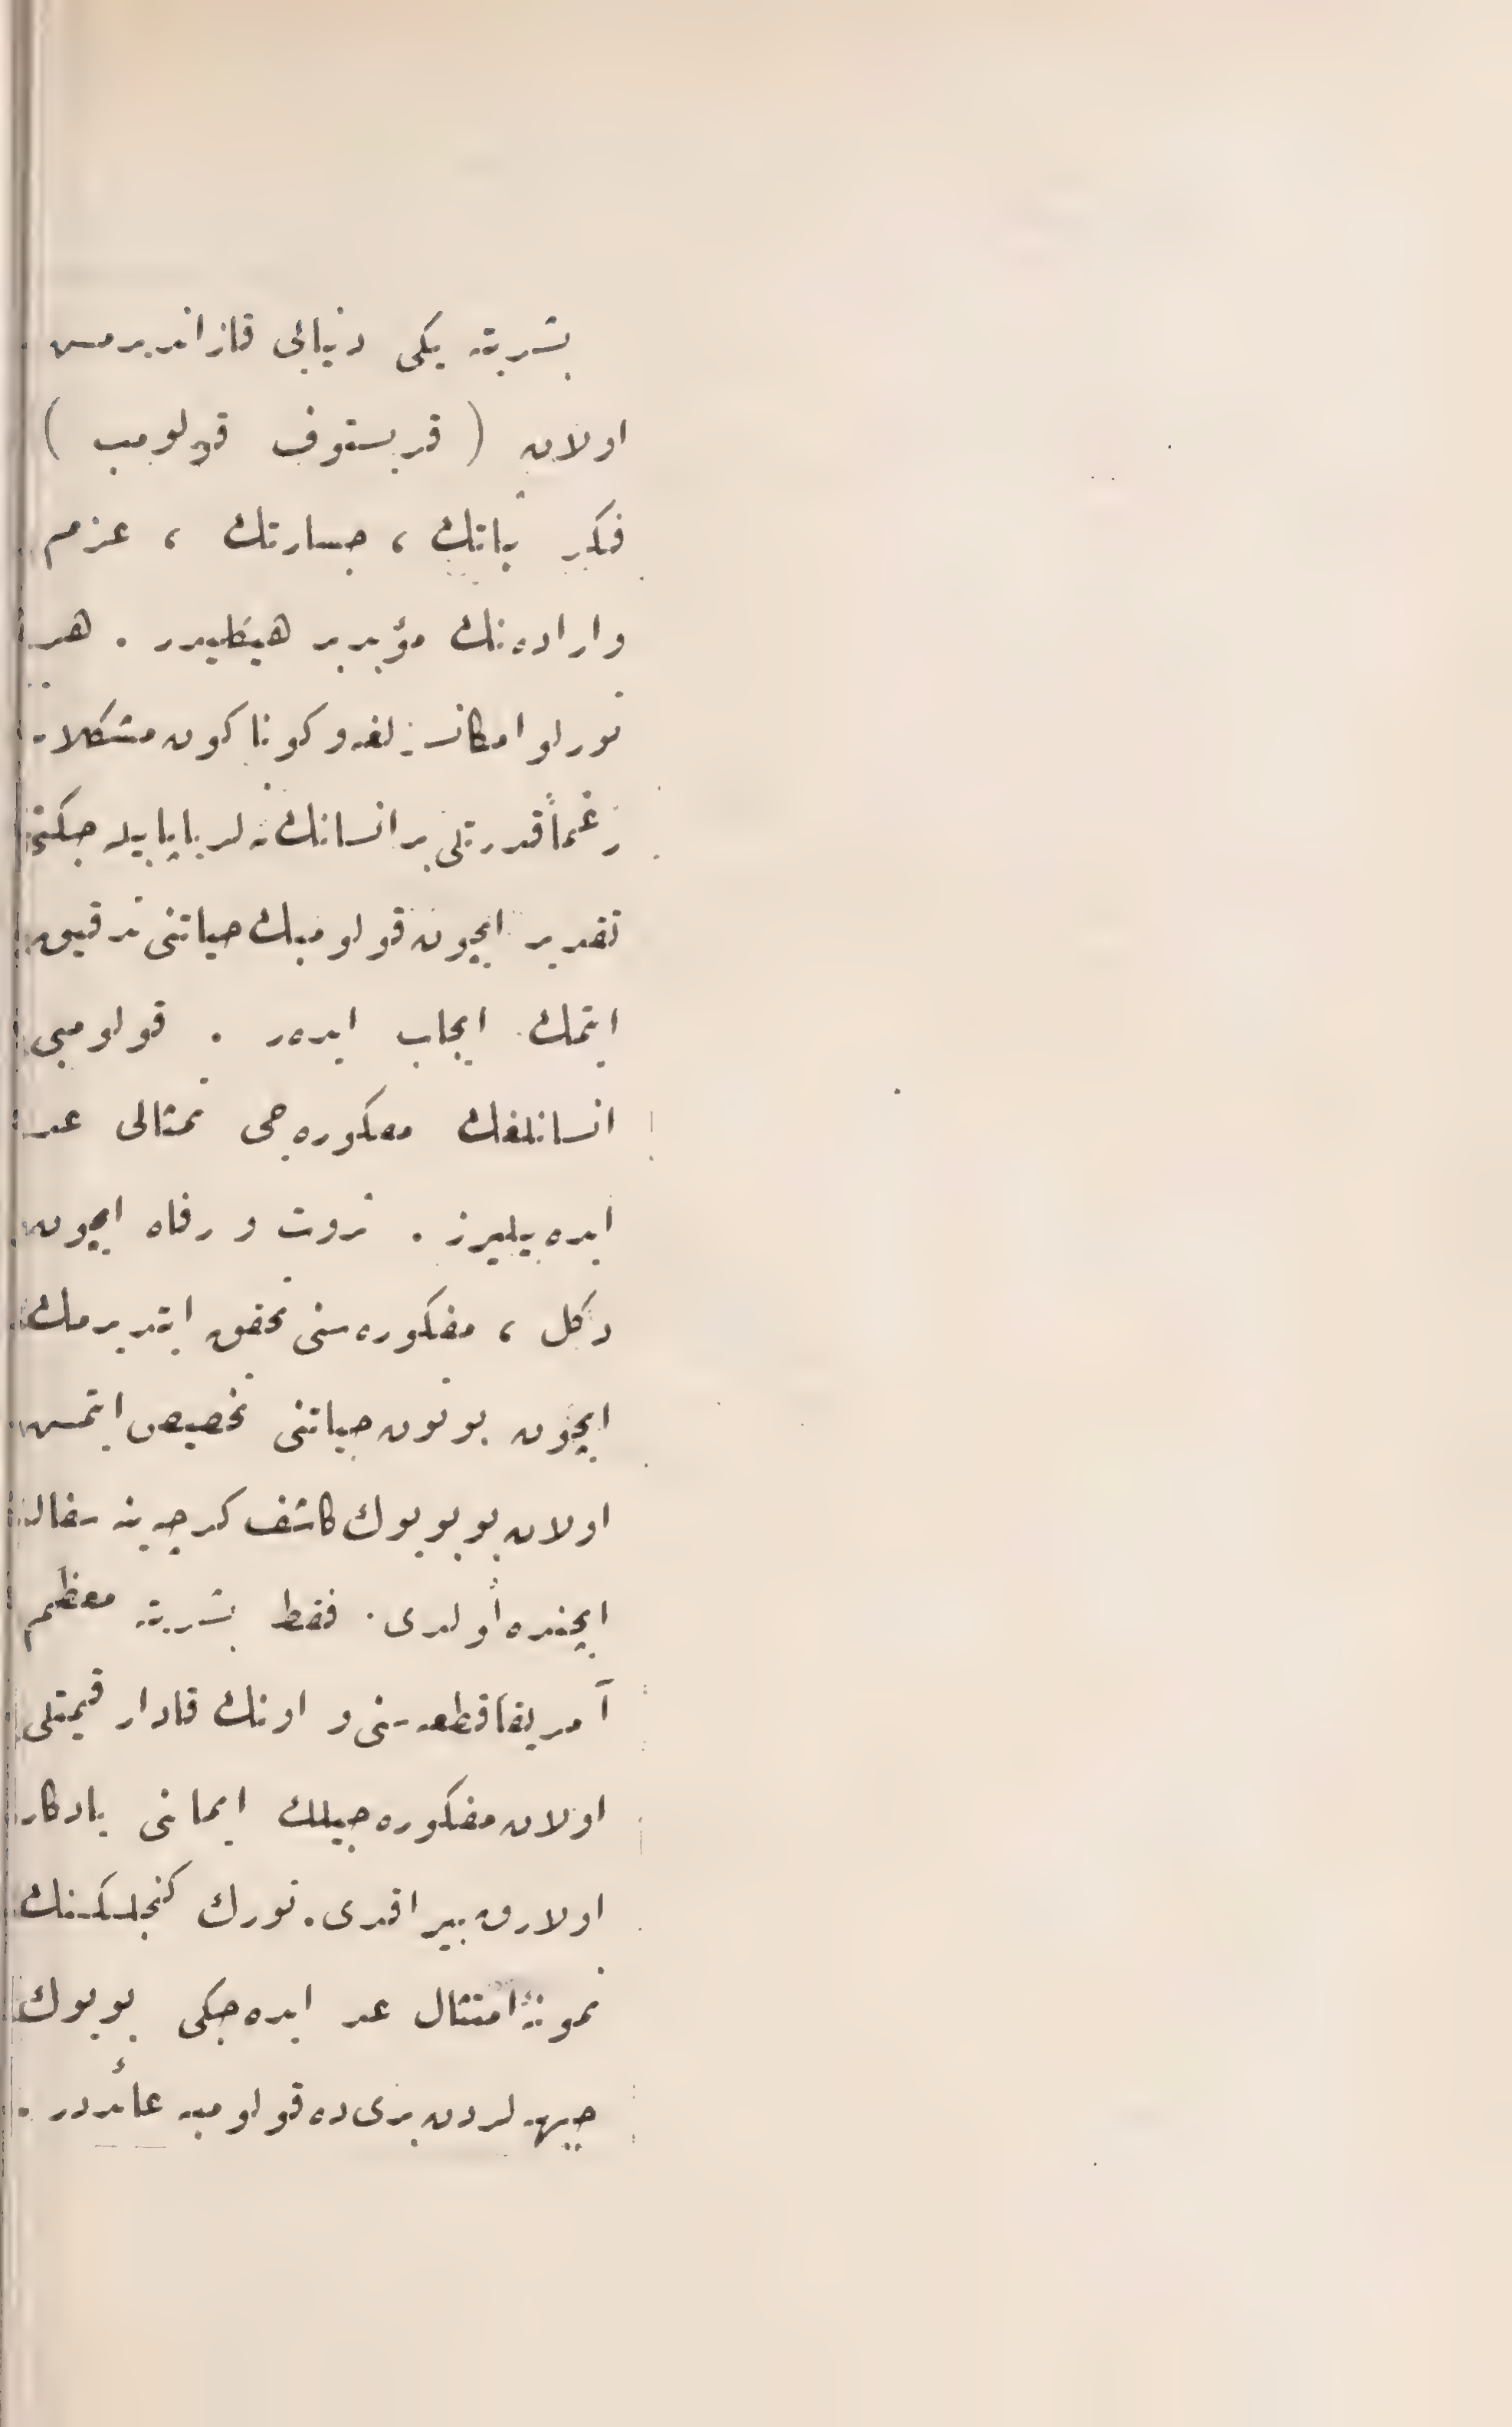 بشریته یكی دنیایی قازاندیرمش
اولان ( قریستوف قولومب )
فكر ثباتك ، جسارتك ، عزم
واراده‌نك مؤبد بر هیكلیدر . هر
تورلو امكانسزلغه و كوناكون مشكلاته
رغماً قدرتلی بر انسانك نه‌لر یاپابیله‌جكنی
تقدیر ایچون قولومبك حیاتنی تدقیق
ایتمك ایجاب ایدر . قولومبی
انسانلغك مفكوره‌جی تمثالی عد
ایده‌بیلیرز . ثروت و رفاه ایچون
دكل ، مفكوره‌سنی تحقق ایتدیرمك
ایچون بوتون حیاتنی تخصیص ایتمش
اولان بو بویوك كاشف كرچه ینه سفالت
ایچنده أولدی . فقط بشریته معظم
آمریقا قطعه‌سنی و اونك قادار قیمتلی
اولان مفكوره‌جیلك ایمانی یادكار
اولارق بیراقدی . تورك كنجلكنك
نمونهٔ امتثال عد ایده‌جكی بویوك
جبهه‌لردن بری ده قولومبه عائددر .